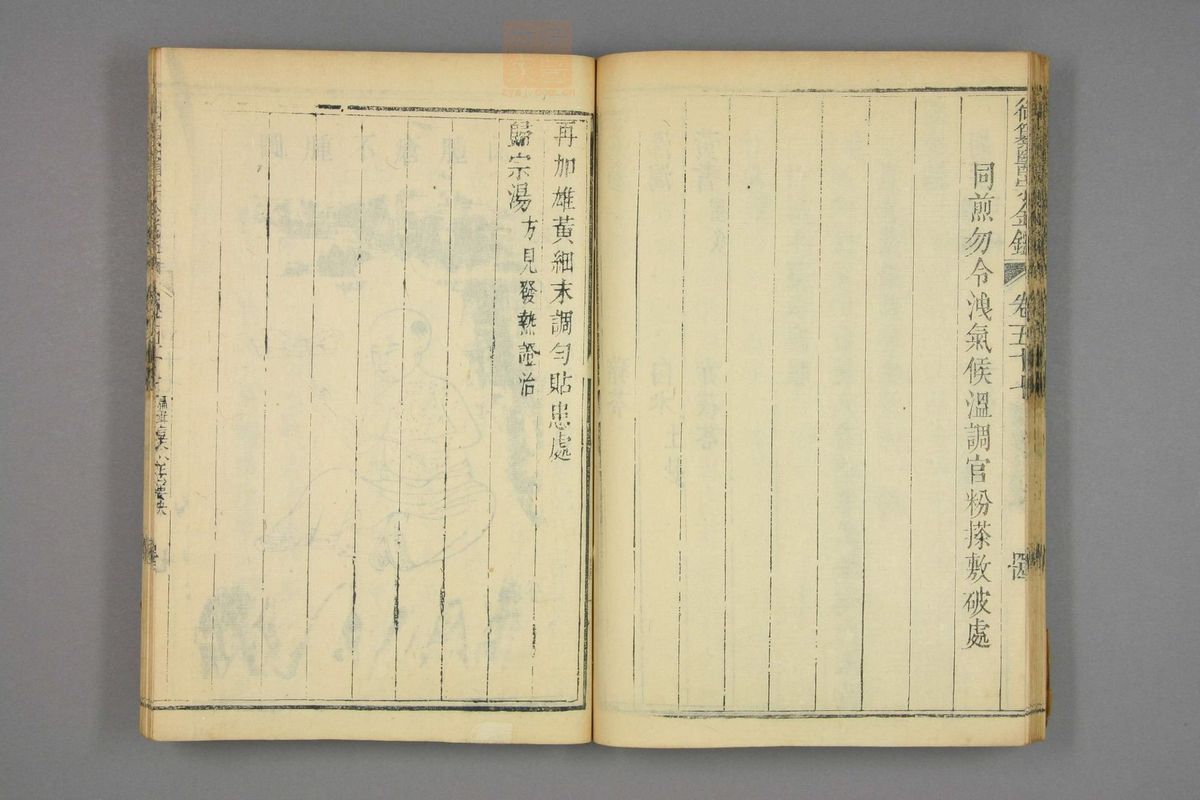 御纂醫宗金鑑 卷五十
同煎勿令洩氣候溫調官粉搽敷破處
再加雄黃細末調勻貼患處
歸宗湯方見發熱證治